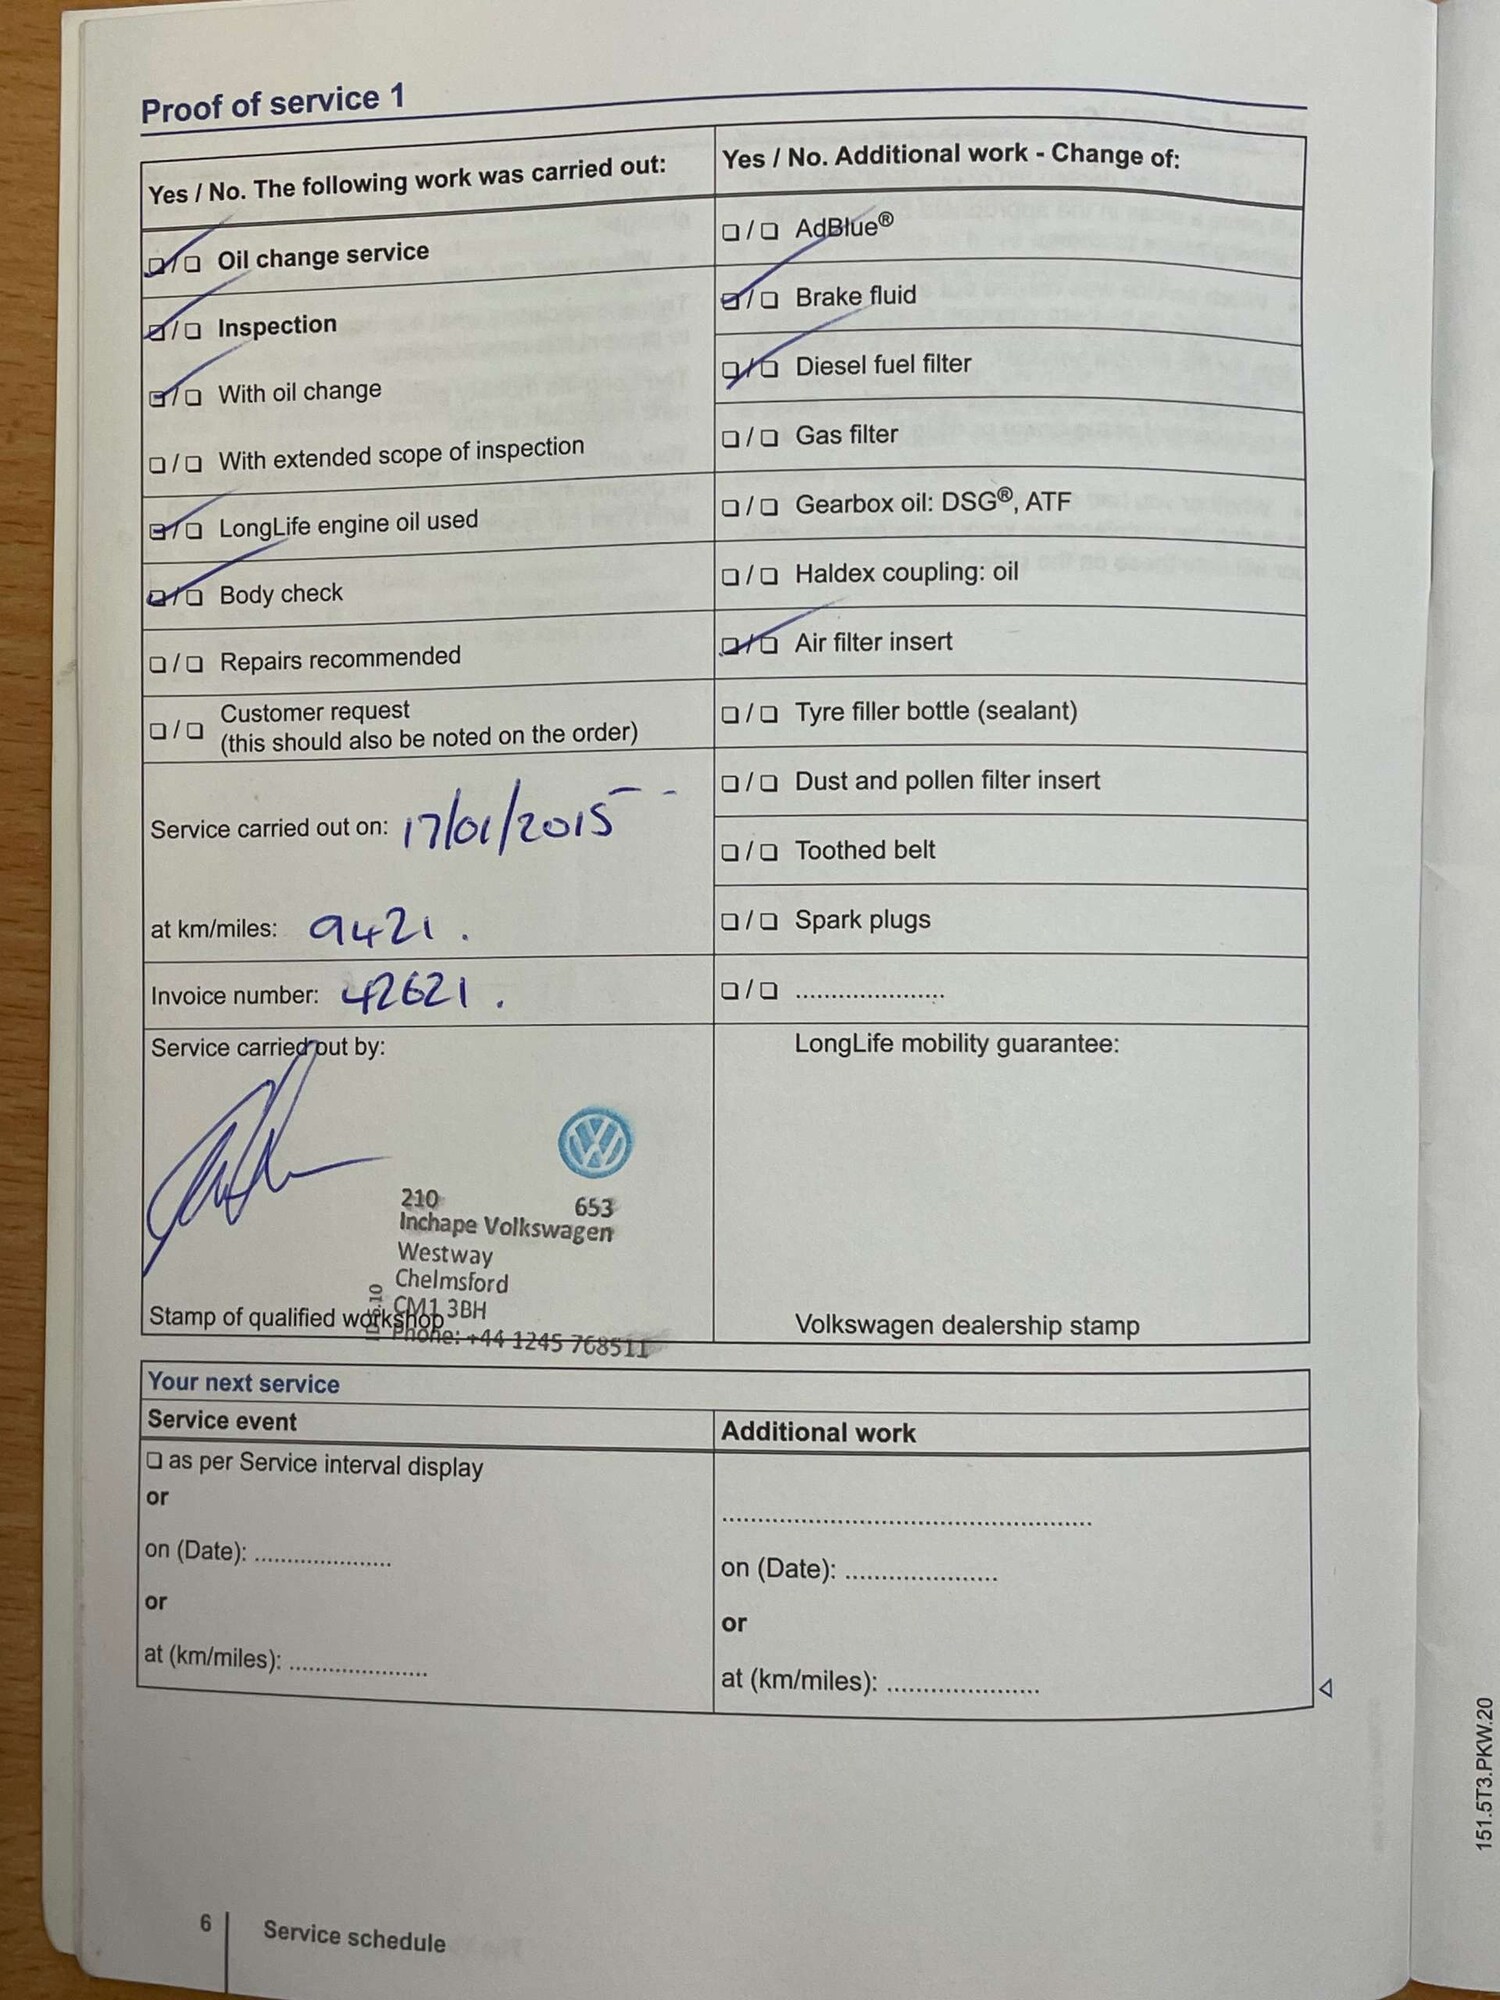 Proof of service 1
Yes / No. The following work was carried out:
❏ / ❏ Oil change service
❏ / ❏ Inspection
❏ / ❏ With oil change
❏ / ❏ With extended scope of inspection
❏ / ❏ LongLife engine oil used
❏ / ❏ Body check
❏ / ❏ Repairs recommended
❏ / ❏ Customer request
(this should also be noted on the order)
Service carried out on: 17/01/2015
at km/miles: 9421.
Invoice number: 42621.
Service carried out by:
210 653
Inchape Volkswagen
Westway
Chelmsford
CM1 3BH
Phone: +44 1245 768511
Stamp of qualified workshop
Yes / No. Additional work - Change of:
❏ / ❏ AdBlue®
❏ / ❏ Brake fluid
❏ / ❏ Diesel fuel filter
❏ / ❏ Gas filter
❏ / ❏ Gearbox oil: DSG®, ATF
❏ / ❏ Haldex coupling: oil
❏ / ❏ Air filter insert
❏ / ❏ Tyre filler bottle (sealant)
❏ / ❏ Dust and pollen filter insert
❏ / ❏ Toothed belt
❏ / ❏ Spark plugs
❏ / ❏ .......................
LongLife mobility guarantee:
Volkswagen dealership stamp
Your next service
Service event
❏ as per Service interval display
or
on (Date): .....................
or
at (km/miles): .....................
Additional work
.........................................................
on (Date): .......................
or
at (km/miles): .......................
6 Service schedule
151.5T3.PKW.20